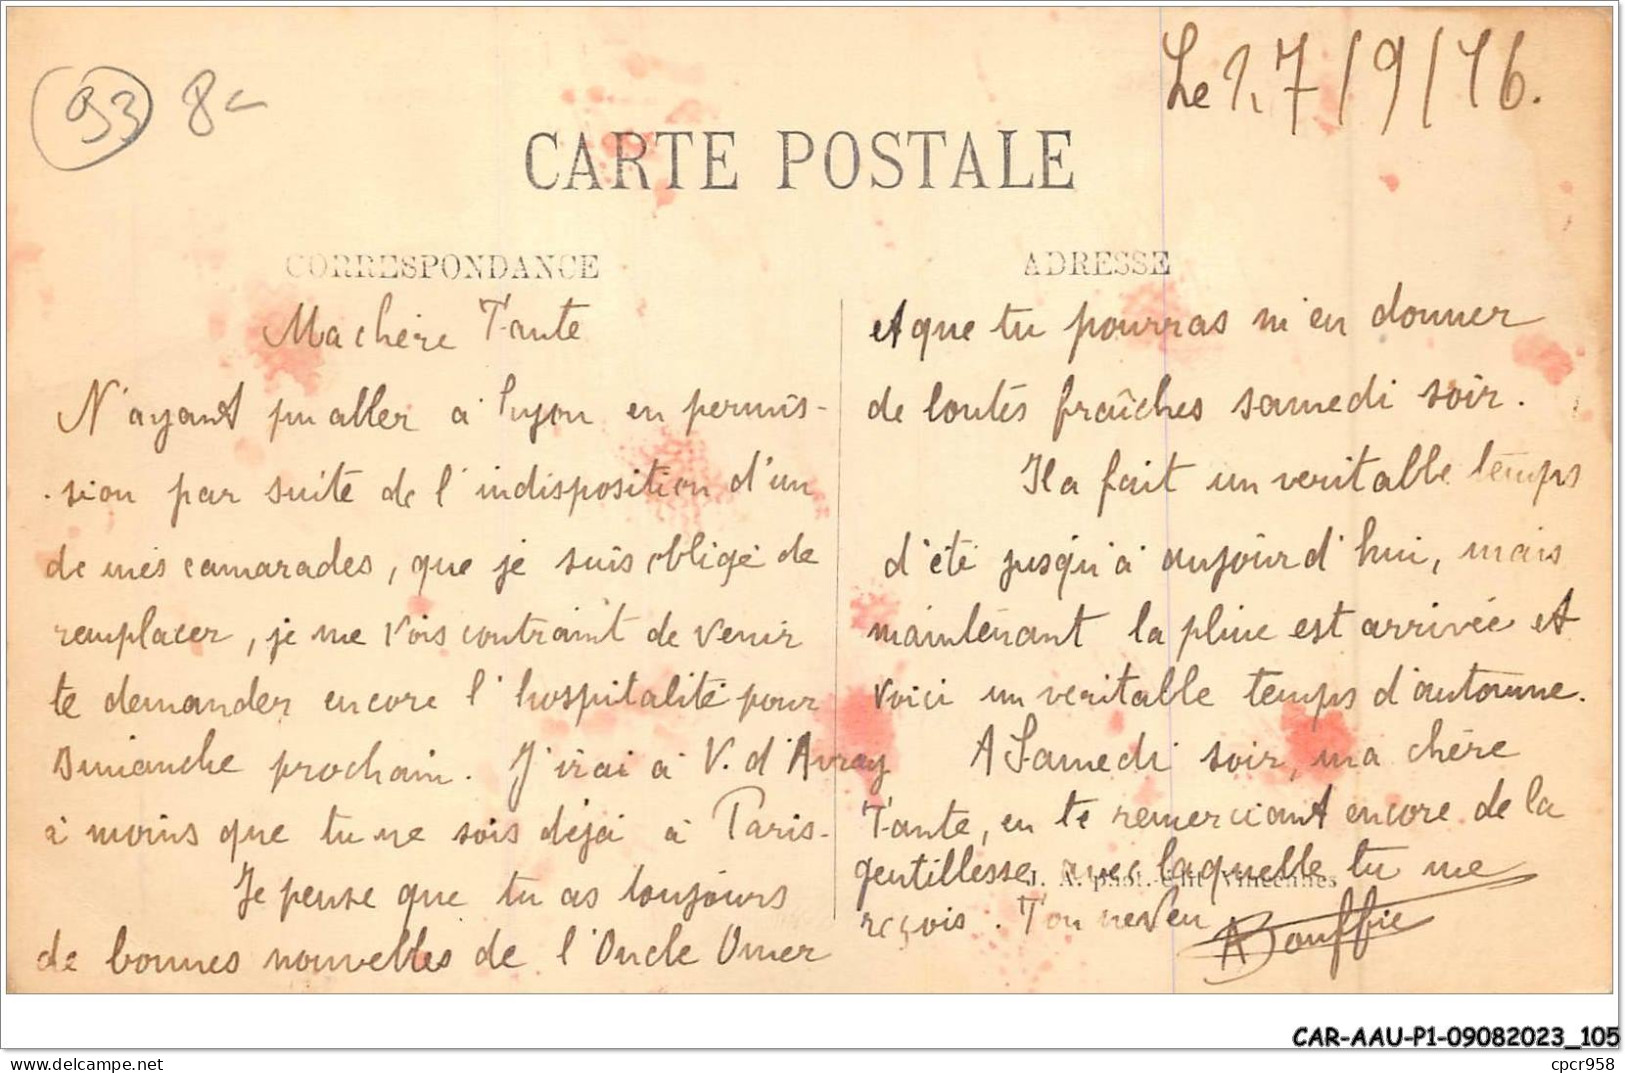 93 8-
Le 27/9/16.
CARTE POSTALE
CORRESPONDANCE
Ma chère Tante
N'ayant pu aller à Lyon en permis-
sion par suite de l'indisposition d'un
de mes camarades, que je suis obligé de
remplacer, je me vois contraint de venir
te demander encore l'hospitalité pour
Dimanche prochain. J'irai à V. d'Avray
à moins que tu ne sois déjà à Paris.
Je pense que tu as toujours
de bonnes nouvelles de l'Oncle Omer
ADRESSE
et que tu pourras m'en donner
de toutes fraîches samedi soir.
Il a fait un veritable temps
d'été jusqu'à aujourd'hui, mais
maintenant la pluie est arrivée et
voici un veritable temps d'automne.
A Samedi soir, ma chère
Tante, en te remerciant encore de la
gentillesse avec laquelle tu me
reçois. Ton neveu
ABouffie
J. A. phot.-édit. Vincennes
CAR-AAU-P1-09082023_105
https://www.delcampe.net
cpcr958